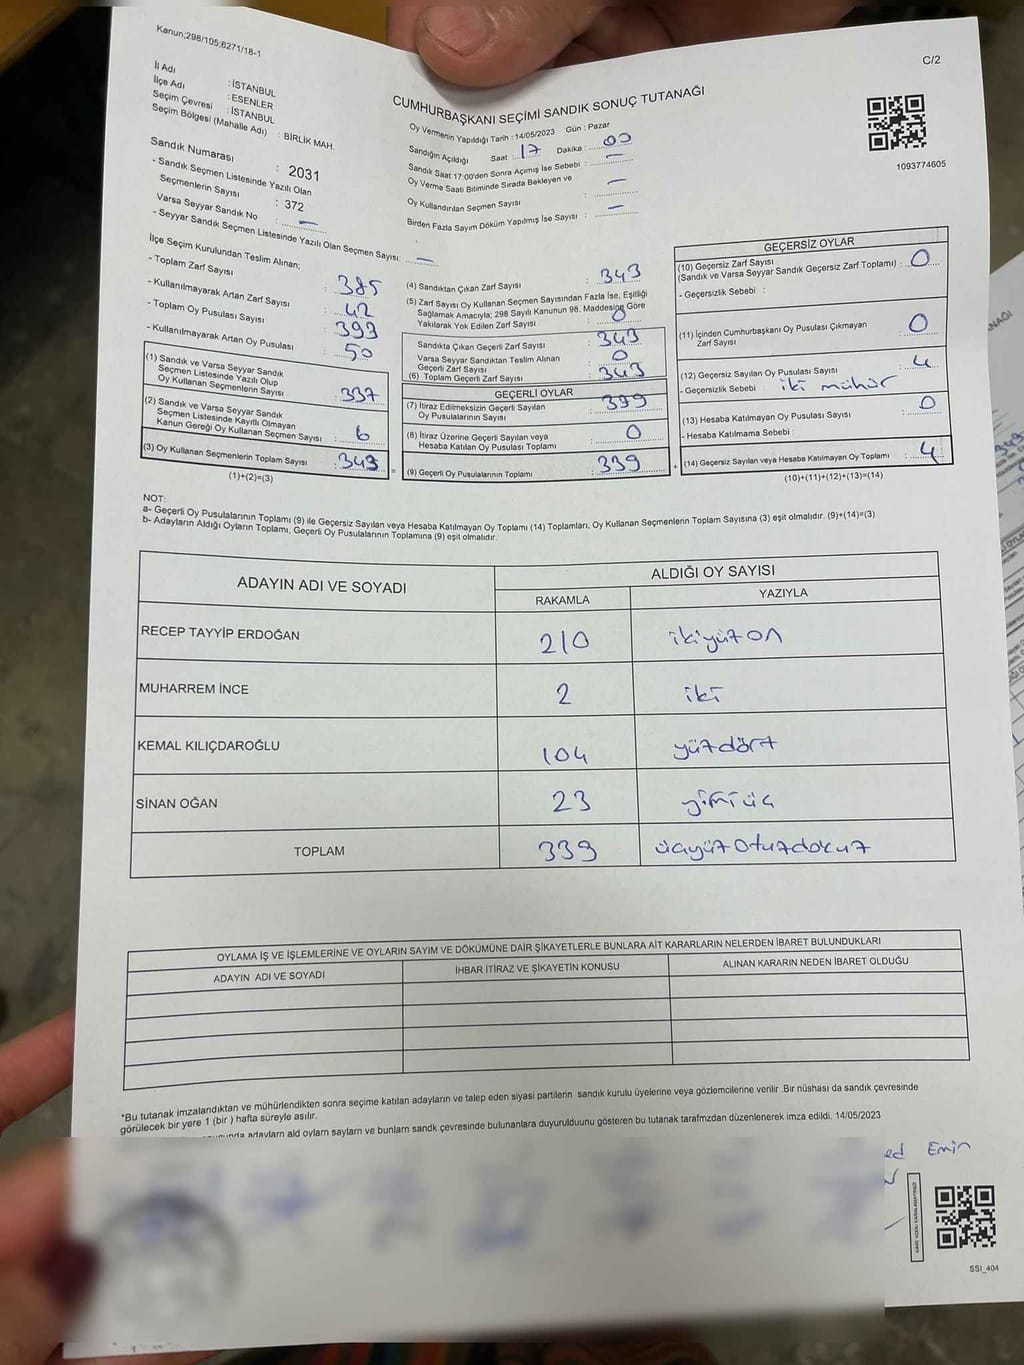 Kanun;298/105;6271/18-1
C/2
İl Adı : İSTANBUL
İlçe Adı : ESENLER
Seçim Çevresi : İSTANBUL
Seçim Bölgesi (Mahalle Adı) : BİRLİK MAH.
CUMHURBAŞKANI SEÇİMİ SANDIK SONUÇ TUTANAĞI
Oy Vermenin Yapıldığı Tarih : 14/05/2023 Gün : Pazar
Sandığın Açıldığı Saat : 17 Dakika : 00
Sandık Saat 17:00'den Sonra Açımış İse Sebebi : —
Oy Verme Saati Bitiminde Sırada Bekleyen ve
Oy Kullandırılan Seçmen Sayısı : —
Birden Fazla Sayım Döküm Yapılmış İse Sayısı : —
1093774605
Sandık Numarası : 2031
- Sandık Seçmen Listesinde Yazılı Olan
Seçmenlerin Sayısı : 372
Varsa Seyyar Sandık No : —
- Seyyar Sandık Seçmen Listesinde Yazılı Olan Seçmen Sayısı: —
İlçe Seçim Kurulundan Teslim Alınan;
- Toplam Zarf Sayısı : 385
- Kullanılmayarak Artan Zarf Sayısı : 42
- Toplam Oy Pusulası Sayısı : 393
- Kullanılmayarak Artan Oy Pusulası : 50
(1) Sandık ve Varsa Seyyar Sandık
Seçmen Listesinde Yazılı Olup
Oy Kullanan Seçmenlerin Sayısı : 337
(2) Sandık ve Varsa Seyyar Sandık
Seçmen Listesinde Kayıtlı Olmayan
Kanun Gereği Oy Kullanan Seçmen Sayısı : 6
(3) Oy Kullanan Seçmenlerin Toplam Sayısı : 343
(1)+(2)=(3)
(4) Sandıktan Çıkan Zarf Sayısı : 343
(5) Zarf Sayısı Oy Kullanan Seçmen Sayısından Fazla İse, Eşitliği
Sağlamak Amacıyla; 298 Sayılı Kanunun 98. Maddesine Göre
Yakılarak Yok Edilen Zarf Sayısı : 0
Sandıkta Çıkan Geçerli Zarf Sayısı : 343
Varsa Seyyar Sandıktan Teslim Alınan
Geçerli Zarf Sayısı : 0
(6) Toplam Geçerli Zarf Sayısı : 343
GEÇERLİ OYLAR
(7) İtiraz Edilmeksizin Geçerli Sayılan
Oy Pusulalarının Sayısı : 339
(8) İtiraz Üzerine Geçerli Sayılan veya
Hesaba Katılan Oy Pusulası Toplamı : 0
(9) Geçerli Oy Pusulalarının Toplamı : 339
GEÇERSİZ OYLAR
(10) Geçersiz Zarf Sayısı
(Sandık ve Varsa Seyyar Sandık Geçersiz Zarf Toplamı) : 0
- Geçersizlik Sebebi :
(11) İçinden Cumhurbaşkanı Oy Pusulası Çıkmayan
Zarf Sayısı : 0
(12) Geçersiz Sayılan Oy Pusulası Sayısı : 4
- Geçersizlik Sebebi : iki mühür
(13) Hesaba Katılmayan Oy Pusulası Sayısı : 0
- Hesaba Katılmama Sebebi :
(14) Geçersiz Sayılan veya Hesaba Katılmayan Oy Toplamı : 4
(10)+(11)+(12)+(13)=(14)
NOT:
a- Geçerli Oy Pusulalarının Toplamı (9) ile Geçersiz Sayılan veya Hesaba Katılmayan Oy Toplamı (14) Toplamları, Oy Kullanan Seçmenlerin Toplam Sayısına (3) eşit olmalıdır. (9)+(14)=(3)
b- Adayların Aldığı Oyların Toplamı, Geçerli Oy Pusulalarının Toplamına (9) eşit olmalıdır.
ADAYIN ADI VE SOYADI ALDIĞI OY SAYISI
RAKAMLA YAZIYLA
RECEP TAYYİP ERDOĞAN 210 ikiyüzon
MUHARREM İNCE 2 iki
KEMAL KILIÇDAROĞLU 104 yüzdört
SİNAN OĞAN 23 yirmiüç
TOPLAM 339 üçyüzotuzdokuz
OYLAMA İŞ VE İŞLEMLERİNE VE OYLARIN SAYIM VE DÖKÜMÜNE DAİR ŞİKAYETLERLE BUNLARA AİT KARARLARIN NELERDEN İBARET BULUNDUKLARI
ADAYIN ADI VE SOYADI İHBAR İTİRAZ VE ŞİKAYETİN KONUSU ALINAN KARARIN NEDEN İBARET OLDUĞU
*Bu tutanak imzalandıktan ve mühürlendikten sonra seçime katılan adayların ve talep eden siyasi partilerin sandık kurulu üyelerine veya gözlemcilerine verilir .Bir nüshası da sandık çevresinde
görülecek bir yere 1 (bir ) hafta süreyle asılır.
adayların ald oyların sayları ve bunlarn sandk çevresinde bulunanlara duyurulduunu gösteren bu tutanak tarafmzdan düzenlenerek imza edildi. 14/05/2023
ed Emin
SSI_404